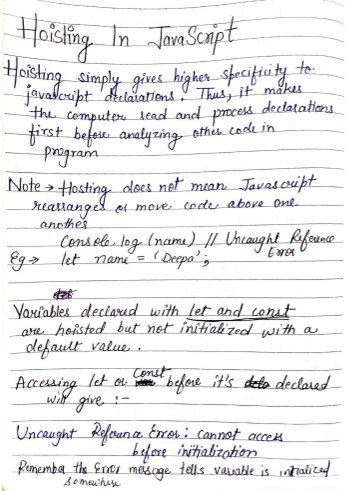 Hoisting In JavaScript
Hoisting simply gives higher specificity to
javascript declarations. Thus, it makes
the computer read and process declarations
first before analyzing other code in
program
Note → Hosting does not mean Javascript
rearranges or move code above one
another
Console.log (name) // Uncaught Reference
Error
Eg → let name = 'Deepa';
Variables declared with let and const
are hoisted but not initialized with a
default value.
Accessing let or const before it's declared
will give :-
Uncaught Referance Error: cannot access
before initialization
Remember the Error message tells variable is initialized
somewhere